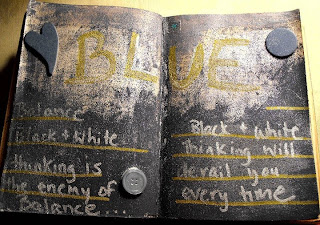 BLUE
Balance
Black + White
thinking is
the enemy of
Balance...
Black + white
Thinking will
derail you
every time